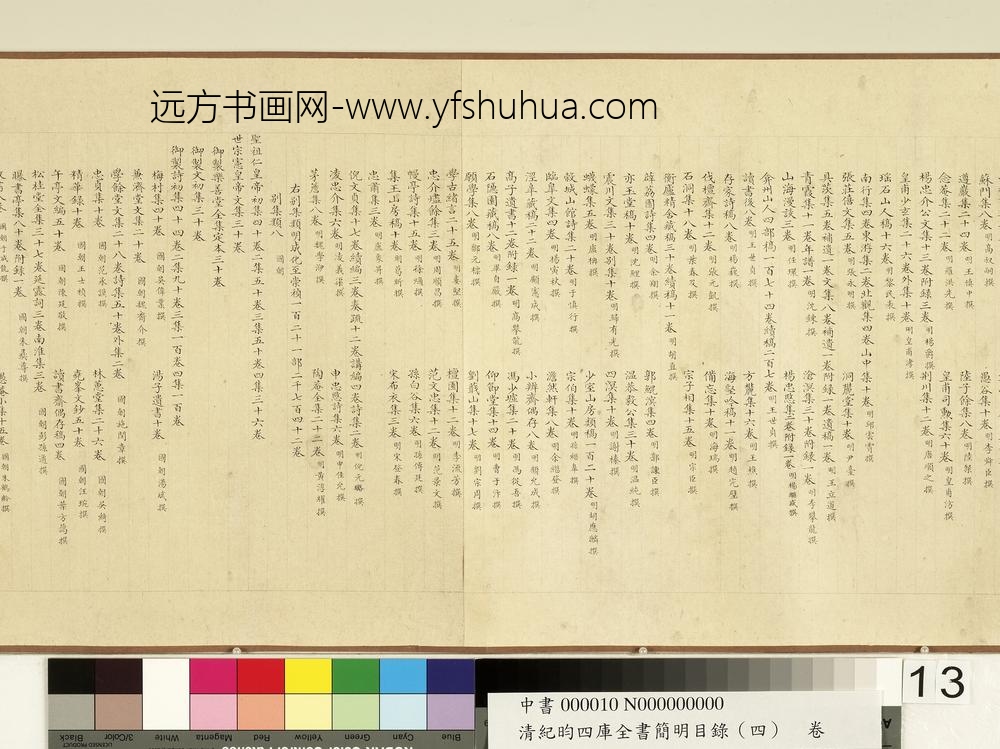 远方书画网-www.yfshuhua.com
蘇門集八卷 明高叔嗣撰 愚谷集十卷 明李舜臣撰
遵巖集二十四卷 明王慎中撰 陸子餘集八卷 明陸粲撰
念菴集二十二卷 明羅洪先撰 皇甫司勳集六十卷 明皇甫汸撰
楊忠介公文集十三卷附錄三卷 明楊爵撰 荆川集十二卷 明唐順之撰
皇甫少玄集二十六卷外集十卷 明皇甫涍撰
瑶石山人稿十六卷 明黎民表撰
南行集四卷東游集二卷北觀集四卷山中集十卷 明邱雲霄撰
張莊僖文集五卷 明張永明撰 洞麓堂集十卷 明尹臺撰
具茨集五卷補遺一卷文集八卷補遺一卷附錄一卷遺稿一卷 明王立道撰
青霞集十一卷年譜一卷 明沈鍊撰 滄溟集三十卷附錄一卷 明李攀龍撰
山海漫談三卷 明任環撰 楊忠愍集三卷附錄一卷 明楊繼盛撰
弇州山人四部稿一百七十四卷續稿二百七卷 明王世貞撰
讀書後八卷 明王世貞撰 方麓集十六卷 明王樵撰
存家詩稿八卷 明楊巍撰 海壑吟稿十一卷 明趙完璧撰
伐檀齋集十二卷 明張元凱撰 備忘集十卷 明海瑞撰
石洞集十八卷 明葉春及撰 宗子相集十五卷 明宗臣撰
衡廬精舍藏稿三十卷續稿十一卷 明胡直撰
薜荔園詩集四卷 明佘翔撰 郭鯤溟集四卷 明郭諫臣撰
亦玉堂稿十卷 明沈鯉撰 温恭毅公集三十卷 明温純撰
震川文集三十卷别集十卷 明歸有光撰 四溟集十卷 明謝榛撰
蠛蠓集五卷 明盧柟撰 少室山房類稿一百二十卷 明胡應麟撰
穀城山館詩集二十卷 明于慎行撰 宗伯集十卷 明孫繼皋撰
臨皋文集四卷 明楊寅秋撰 澹然軒集八卷 明余繼登撰
涇皋藏稿二十二卷 明顧憲成撰 小辨齋偶存八卷 明顧允成撰
高子遺書十二卷附錄一卷 明高攀龍撰 馮少墟集二十二卷 明馮從吾撰
石隱園藏稿八卷 明畢自嚴撰 仰節堂集十四卷 明曹于汴撰
願學集八卷 明鄒元標撰 劉蕺山集十七卷 明劉宗周撰
學古緒言二十五卷 明婁堅撰 檀園集十二卷 明李流芳撰
忠介燼餘集三卷 明周順昌撰 范文忠集十二卷 明范景文撰
幔亭詩集十五卷 明徐熥撰 孫白谷集六卷 明孫傳庭撰
集玉山房稿十卷 明葛昕撰 宋布衣集三卷 明宋登春撰
忠肅集三卷 明盧象昇撰
倪文貞集十七卷續編三卷奏疏十二卷講編四卷詩集二卷 明倪元璐撰
凌忠介集六卷 明凌義渠撰 申忠愍詩集六卷 明申佳允撰
茅簷集八卷 明魏學洢撰 陶菴全集二十二卷 明黃淳耀撰
右别集類明成化至崇禎一百二十一部二千七百四十二卷
别集類 國朝
别集類八
聖祖仁皇帝初集四十卷二集五十卷三集五十卷四集三十六卷
世宗憲皇帝文集三十卷
御製樂善堂全集定本三十卷
御製文初集三十卷
御製詩初集四十四卷二集九十卷三集一百卷四集一百卷
梅村集四十卷 國朝吳偉業撰 湯子遺書十卷 國朝湯斌撰
兼濟堂文集二十卷 國朝魏裔介撰
學餘堂文集二十八卷詩集五十卷外集二卷 國朝施閏章撰
忠貞集十卷 國朝范承謨撰 林蕙堂集二十六卷 國朝吳綺撰
精華錄十卷 國朝王士禎撰 堯峯文鈔五十卷 國朝汪琬撰
午亭文編五十卷 國朝陳廷敬撰 讀書齋偶存稿四卷 國朝葉方藹撰
松桂堂全集三十七卷延露詞三卷南淮集三卷 國朝彭孫遹撰
曝書亭集八十卷附錄一卷 國朝朱彝尊撰
13
Blue
Cyan
Green
Yellow
Red
Magenta
White
3/Color
Black
中書 000010 N000000000
清紀昀四庫全書簡明目錄（四） 卷